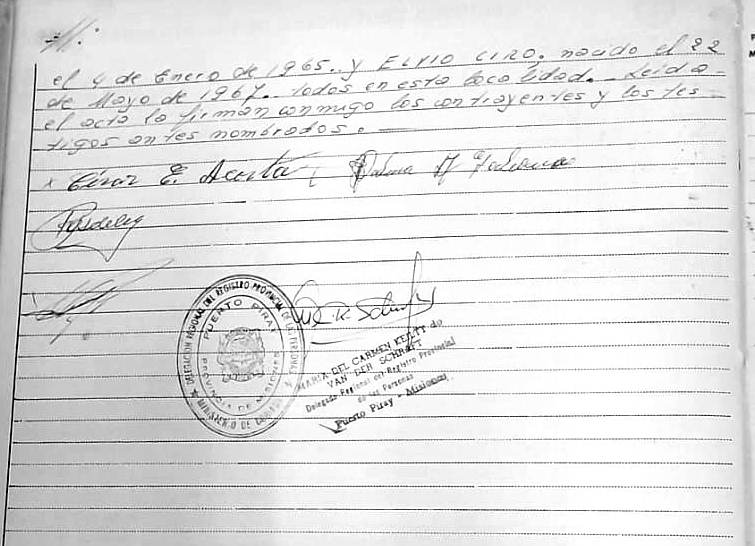 //:
el 4 de Enero de 1965.. y ELVIO CIRO. nacido el 22
de Mayo de 1967.. todos en esta localidad.. Leida
el acta la firman conmigo los contrayentes y los tes-
tigos antes nombrados. —
x César E. Acosta
DELEGACION REGIONAL DEL REGISTRO PROVINCIAL DE LAS PERSONAS
PUERTO PIRAY
PROVINCIA DE MISIONES
MINISTERIO DE GOBIERNO
MARIA DEL CARMEN de
VAN DER SCHRAFT
Delegada Regional del Registro Provincial
de las Personas
Puerto Piray - Misiones